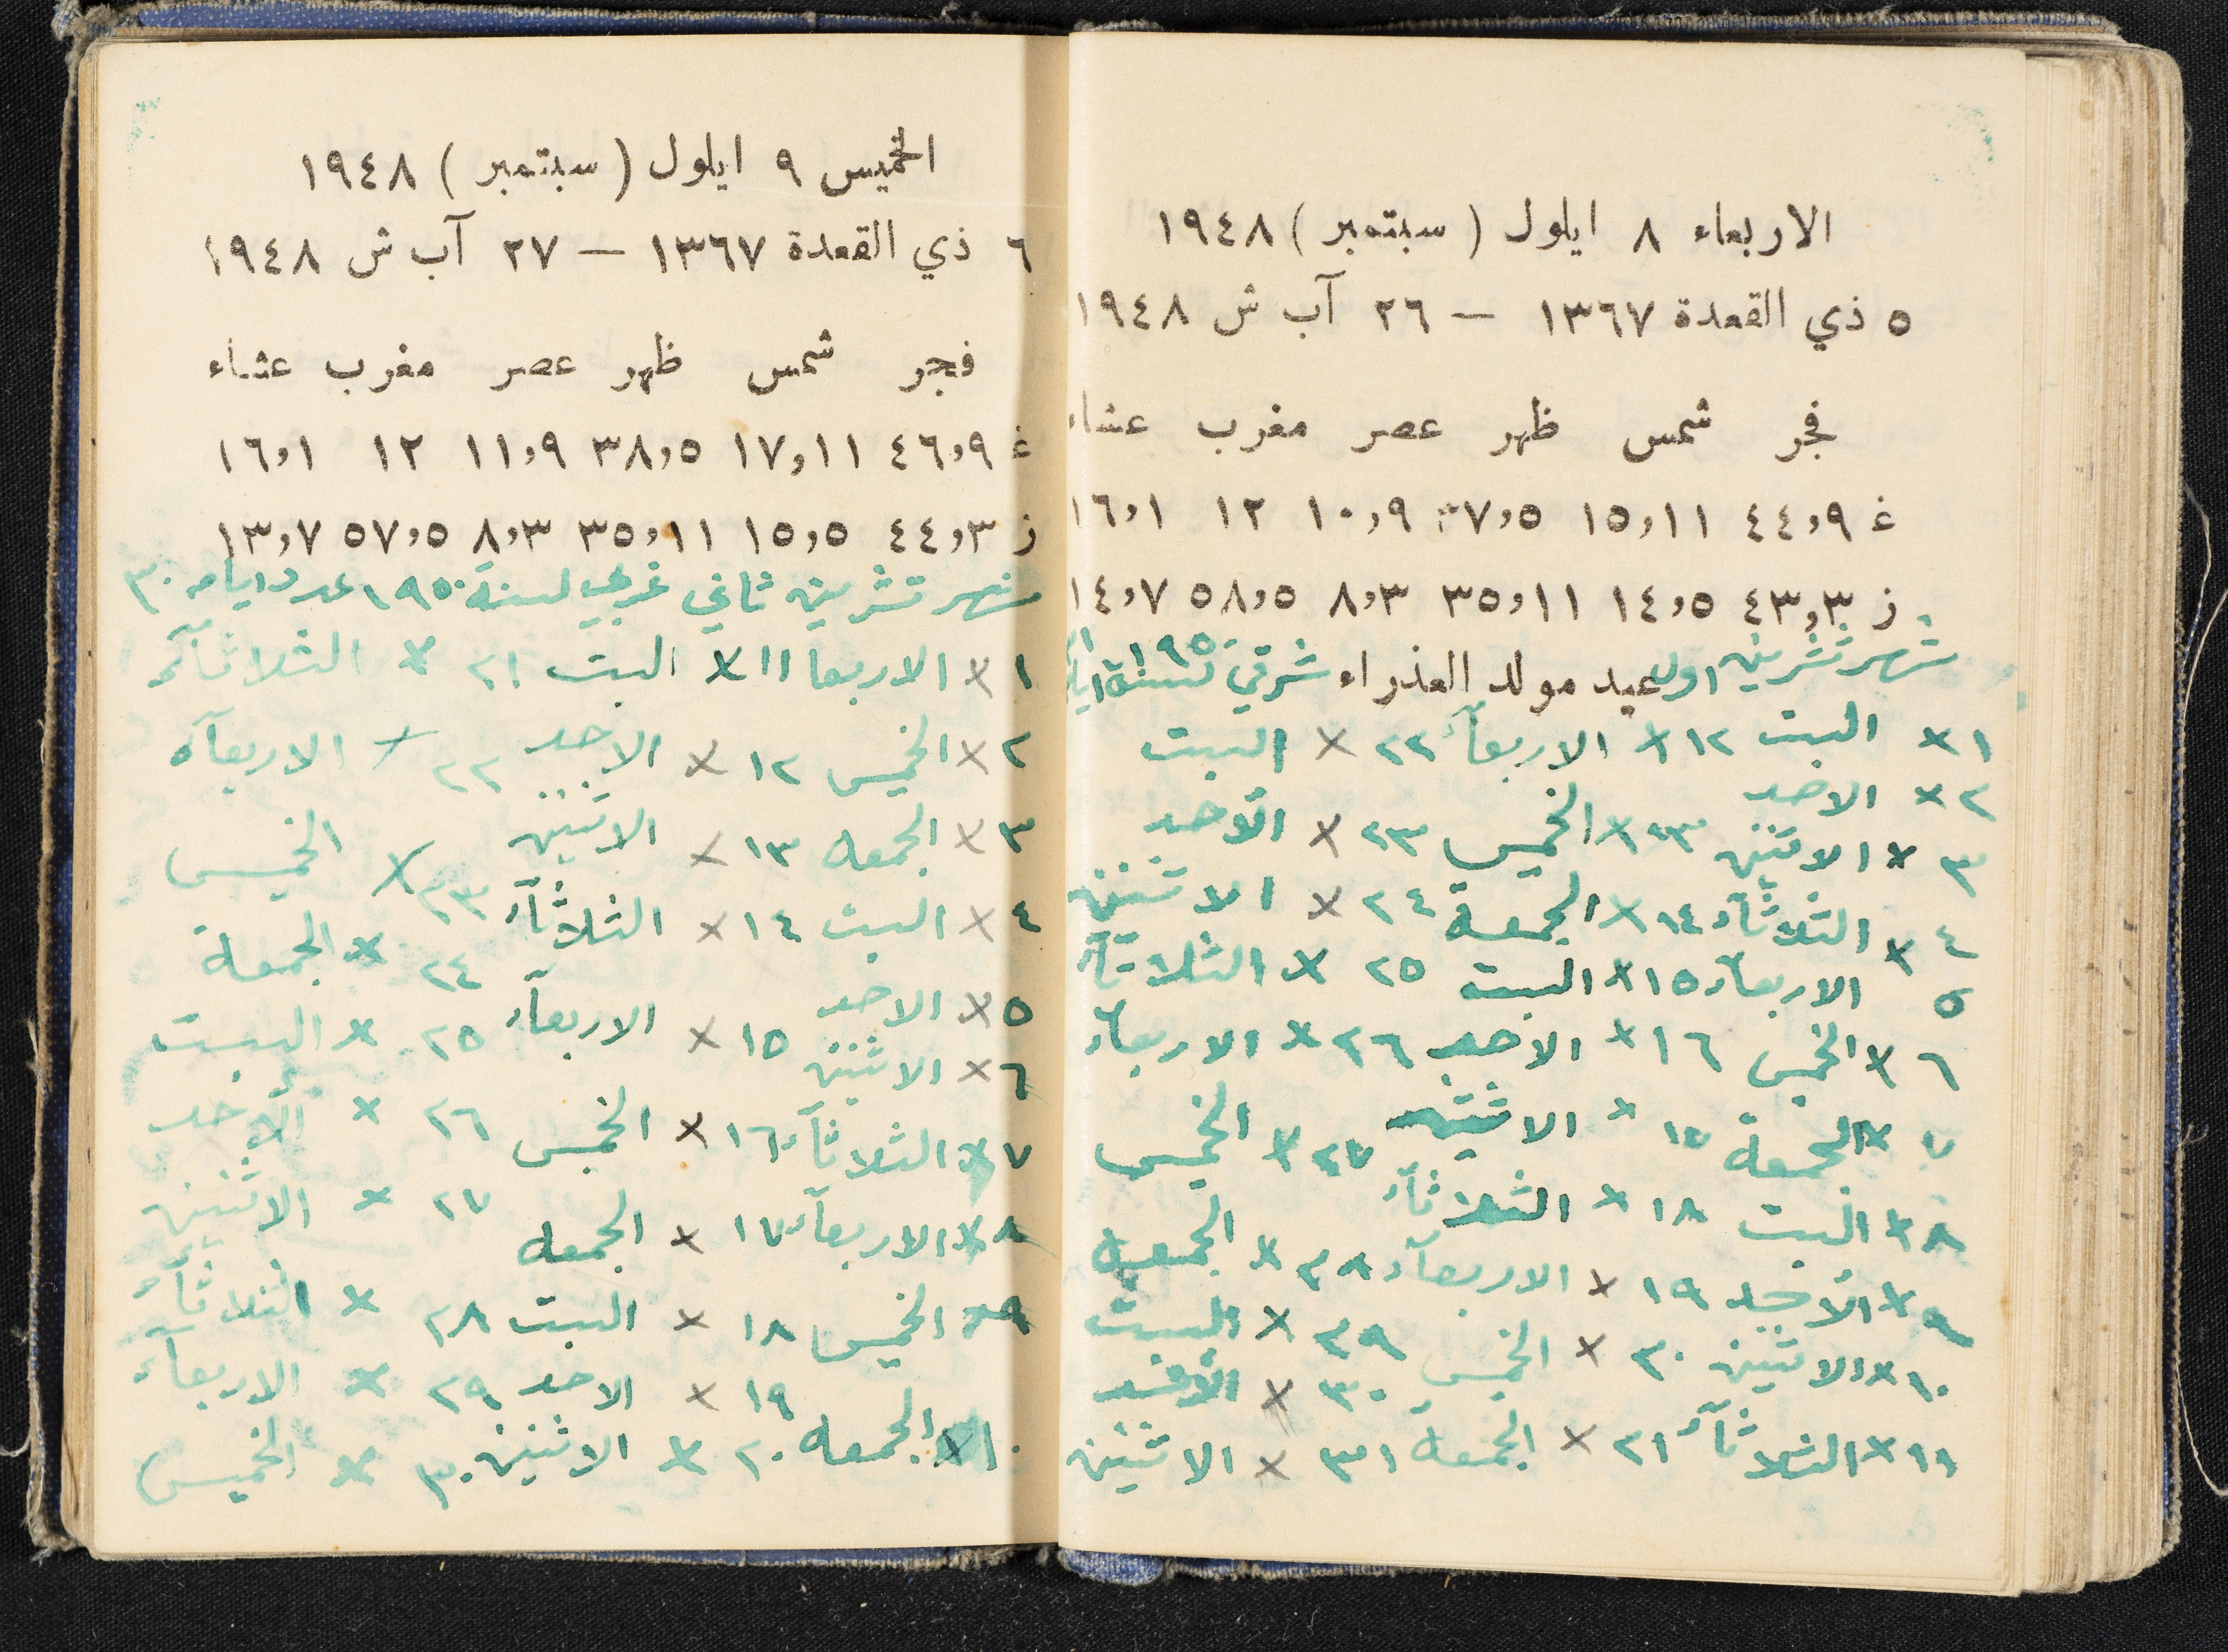 الاربعاء ٨ ايلول (سبتمبر) ١٩٤٨
٥ ذي القعدة ١٣٦٧ – ٢٦ آب ش ١٩٤٨
فجر شمس ظهر عصر مغرب عشاء
غ ٤٤٫٩ ١٥٫١١ ٣٧٫٥ ١٠٫٩ ١٢ ١٦٫١
ز ٤٣٫٣ ١٤٫٥ ٣٥٫١١ ٨٫٣ ٥٨٫٥ ١٤٫٧
شهر تشرين اول عيد مولد العذراء شرقي لسنة ١٩٥٠
١ × السبت ١٢ × الاربعآء ٢٢ × السبت
٢ × الاحد
٣ × الاثنين ١٣ × الخميس ٢٣ × الأحد
٤ × الثلاثآء ١٤ × الجمعة ٢٤ × الاثنين
٥ × الاربعآء ١٥ × السبت ٢٥ × الثلاثآء
٦ × الخميس ١٦ × الاحد ٢٦ × الاربعآء
٧ × الجمعة ١٧ × الاثنين ٢٧ × الخميس
٨ × السبت ١٨ × الثلاثآء
٩ × الأحد ١٩ × الاربعآء ٢٨ × الجمعة
١٠ × الاثنين ٢٠ × الخميس ٢٩ × السبت
٣٠ × الأحد
١١ × الثلاثآء ٢١ × الجمعة ٣١ × الاثنين
الخميس ٩ ايلول (سبتمبر) ١٩٤٨
٦ ذي القعدة ١٣٦٧ – ٢٧ آب ش ١٩٤٨
فجر شمس ظهر عصر مغرب عشاء
غ ٤٦٫٩ ١٧٫١١ ٣٨٫٥ ١١٫٩ ١٢ ١٦٫١
ز ٤٤٫٣ ١٥٫٥ ٣٥٫١١ ٨٫٣ ٥٧٫٥ ١٣٫٧
شهر تشرين ثاني غربي لسنة ١٩٥٠ عدد ايامه ٣٠
١ × الاربعا ١١ × السبت ٢١ × الثلاثآء
٢ × الخميس ١٢ × الاحد ٢٢ × الاربعآء
٣ × الجمعه ١٣ × الاثنين ٢٣ × الخميس
٤ × السبت ١٤ × الثلاثآء ٢٤ × الجمعة
٥ × الاحد ١٥ × الاربعآء ٢٥ × السبت
٦ × الاثنين
٧ × الثلاثآء ١٦ × الخميس ٢٦ × الأحد
٨ × الاربعآء ١٧ × الجمعه ٢٧ × الاثنين
٩ × الخميس ١٨ × السبت ٢٨ × الثلاثآء
١٩ × الاحد ٢٩ × الاربعآء
١٠ × الجمعه ٢٠ × الاثنين ٣٠ × الخميس